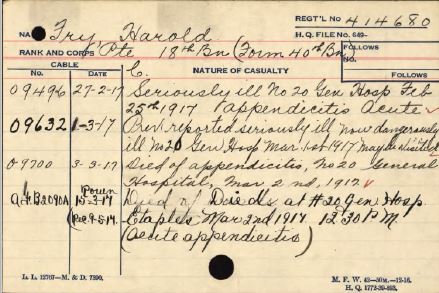 NAME Fry, Harold REGT'L No 414680
H. Q. FILE No. 649-
RANK AND CORPS Pte 18th Bn (Form 40th Bn) FOLLOWS
No.
CABLE C. NATURE OF CASUALTY FOLLOWS
No. DATE
09496 27-2-17 Seriously ill No 20 Gen Hosp Feb
25th 1917 Appendicitis Acute
09632 1-3-17 Prev. reported seriously ill now dangerously
ill No 20 Gen Hosp Mar. 1st 1917 may be visited
09700 3-3-17 Died of appendicitis, No 20 General
Hospital, Mar 2nd, 1917.
B2090A 15-3-17 Died of Diseds at #20 Gen Hosp
Etaples Mar 2nd 1917 12 30 P M
(acute appendicitis)
L. L. 12767—M. & D. 7390. M. F. W. 42—50m.—12-16.
H. Q. 1772-39-893.